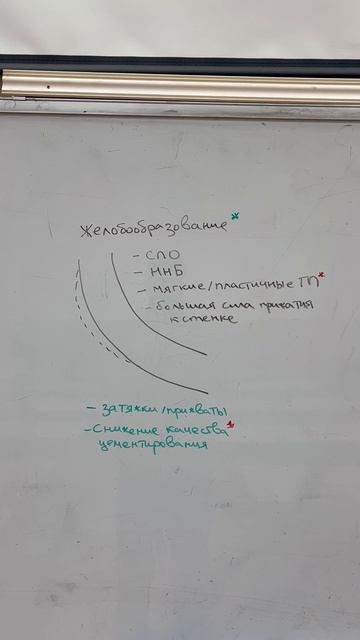 Желобообразование *
- СПО
- ННБ
- мягкие/пластичные ГП *
- большая сила прижатия
к стенке
- затяжки/прихваты
- Снижение качества *
цементирования